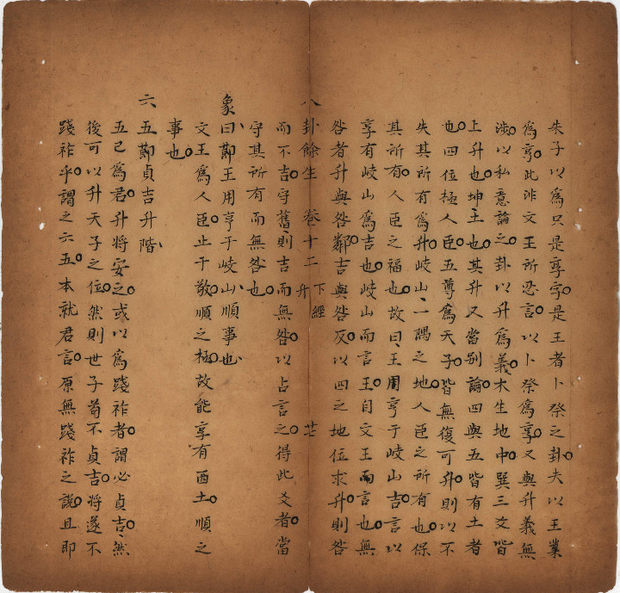 朱子以為只是享字是王者卜祭之卦夫以王業
為亨此非文王所忍言以卜祭為享又與升義無
涉以私意論之卦以升為義木生地中巽三爻皆
上升也坤土也其升又當別論四與五皆有土者
也四位極人臣五尊為天子皆無復可升則以不
失其所有為升岐山一隅之地人臣之所有也保
其所有人臣之福也故曰王用亨于岐山吉言以
享有岐山為吉也岐山而言王自文王而言也無
咎者升與咎鄰吉與咎反以四之地位求升則咎
八卦餘生 卷十二 下經 升 廿
而不吉守舊則吉而無咎以占言之得此爻者當
守其所有而無咎也
象曰鄭王用亨于岐山順事也
文王為人臣止于敬順之極故能享有酉土順之
事也
六五鄭貞吉升階
五已為君升將安之或以為踐祚者謂必貞吉然
後可以升天子之位然則世子苟不貞吉將遂不
踐祚乎謂之六五本就君言原無踐祚之說且即